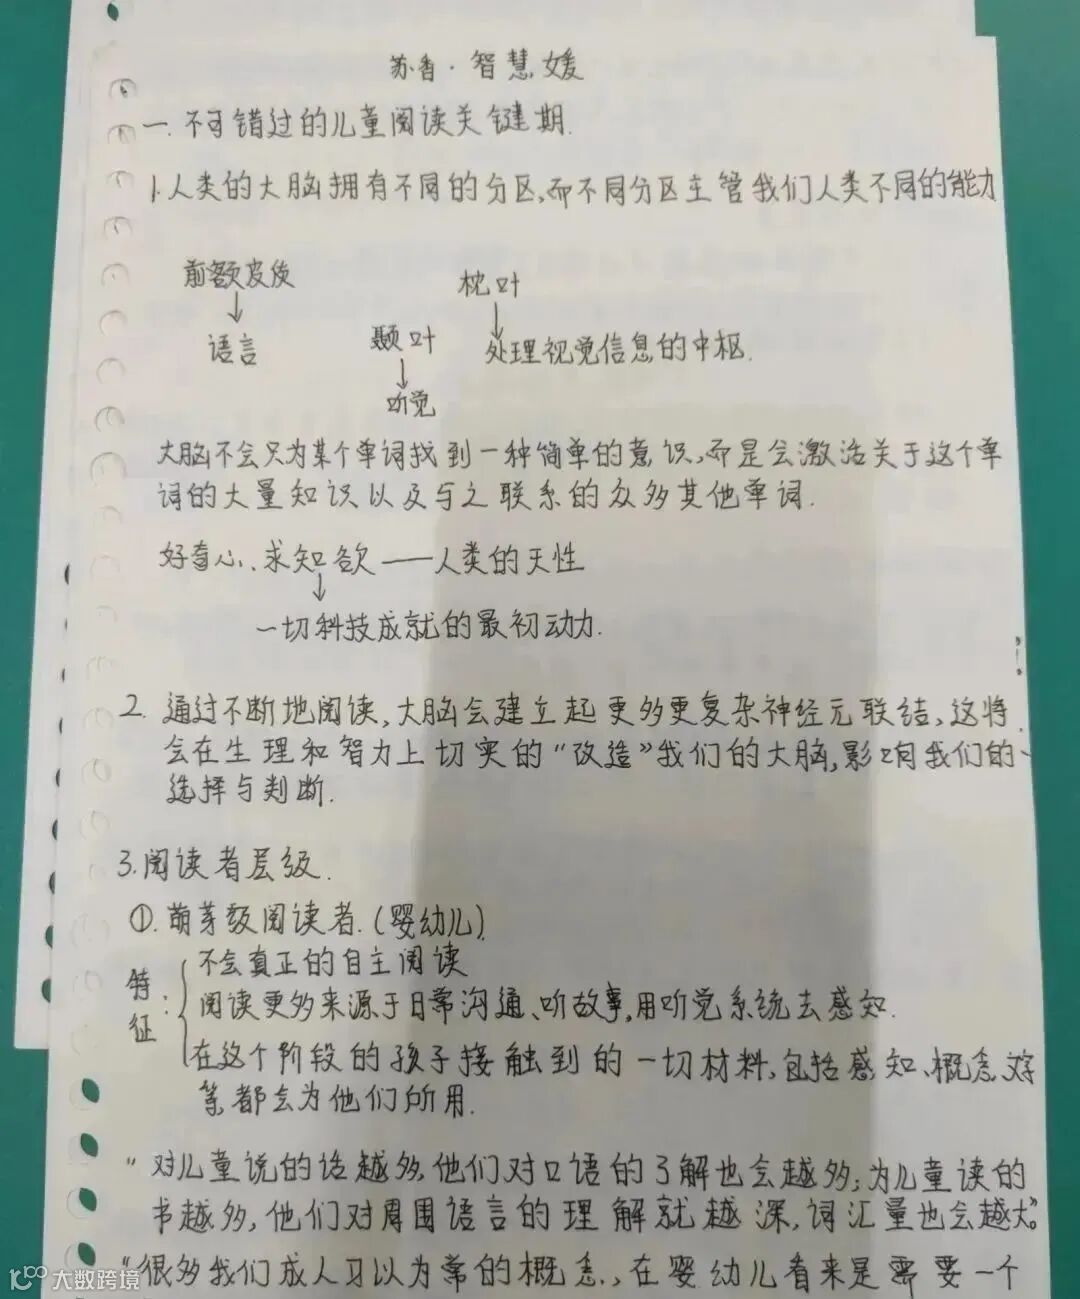 苏香·智慧媛
一. 不可错过的儿童阅读关键期.
1.人类的大脑拥有不同的分区,而不同分区主管我们人类不同的能力
前额皮质
枕叶
↓
↓
语言
颞叶
处理视觉信息的中枢.
↓
听觉
大脑不会只为某个单词找到一种简单的意识,而是会激活关于这个单
词的大量知识以及与之联系的众多其他单词.
好奇心、求知欲——人类的天性
↓
一切科技成就的最初动力.
2. 通过不断地阅读,大脑会建立起更多更复杂神经元联结,这将
会在生理和智力上切实的“改造”我们的大脑,影响我们的
选择与判断.
3.阅读者层级.
①.萌芽级阅读者.(婴幼儿)
特征:
不会真正的自主阅读
阅读更多来源于日常沟通、听故事,用听觉系统去感知.
在这个阶段的孩子接触到的一切材料,包括感知、概念、文字
等,都会为他们所用.
“对儿童说的话越多,他们对口语的了解也会越多;为儿童读的
书越多,他们对周围语言的理解就越深,词汇量也会越大。”
“很多我们成人习以为常的概念,在婴幼儿看来是需要一个
大数跨境